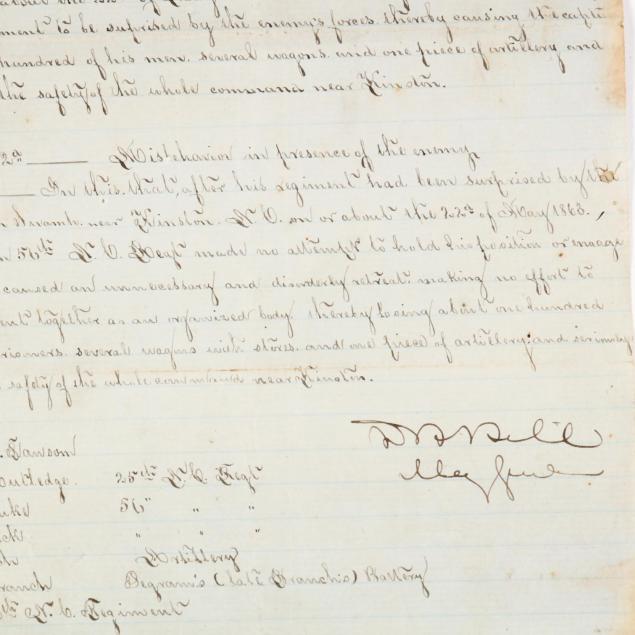 about the 22d of
ment to be suprised by the enemy's forces thereby causing the captu
hundred of his men. several wagons and one piece of artillery and
the safety of the whole command near Kinston.
2d Misbehavior in presence of the enemy,
In this, that, after his regiment had been surprised by the
near Kinston N. C. on or about the 22d of May 1863,
56th N. C. Regt made no attempt to hold his position or
caused an unnecessary and disorderly retreat: making no effort to
ent together as an organized body thereby losing about one hundred
risoners. several wagons with stores. and one piece of artillery; and seriously
safety of the whole command near Kinston.
D H Hill
Maj Genl
Dawson
outledge 25th N. C. Regt
uke 56 " " "
ck " " "
th Artillery
ranch Pegram's (late Branch's) Battery
N. C. Regiment